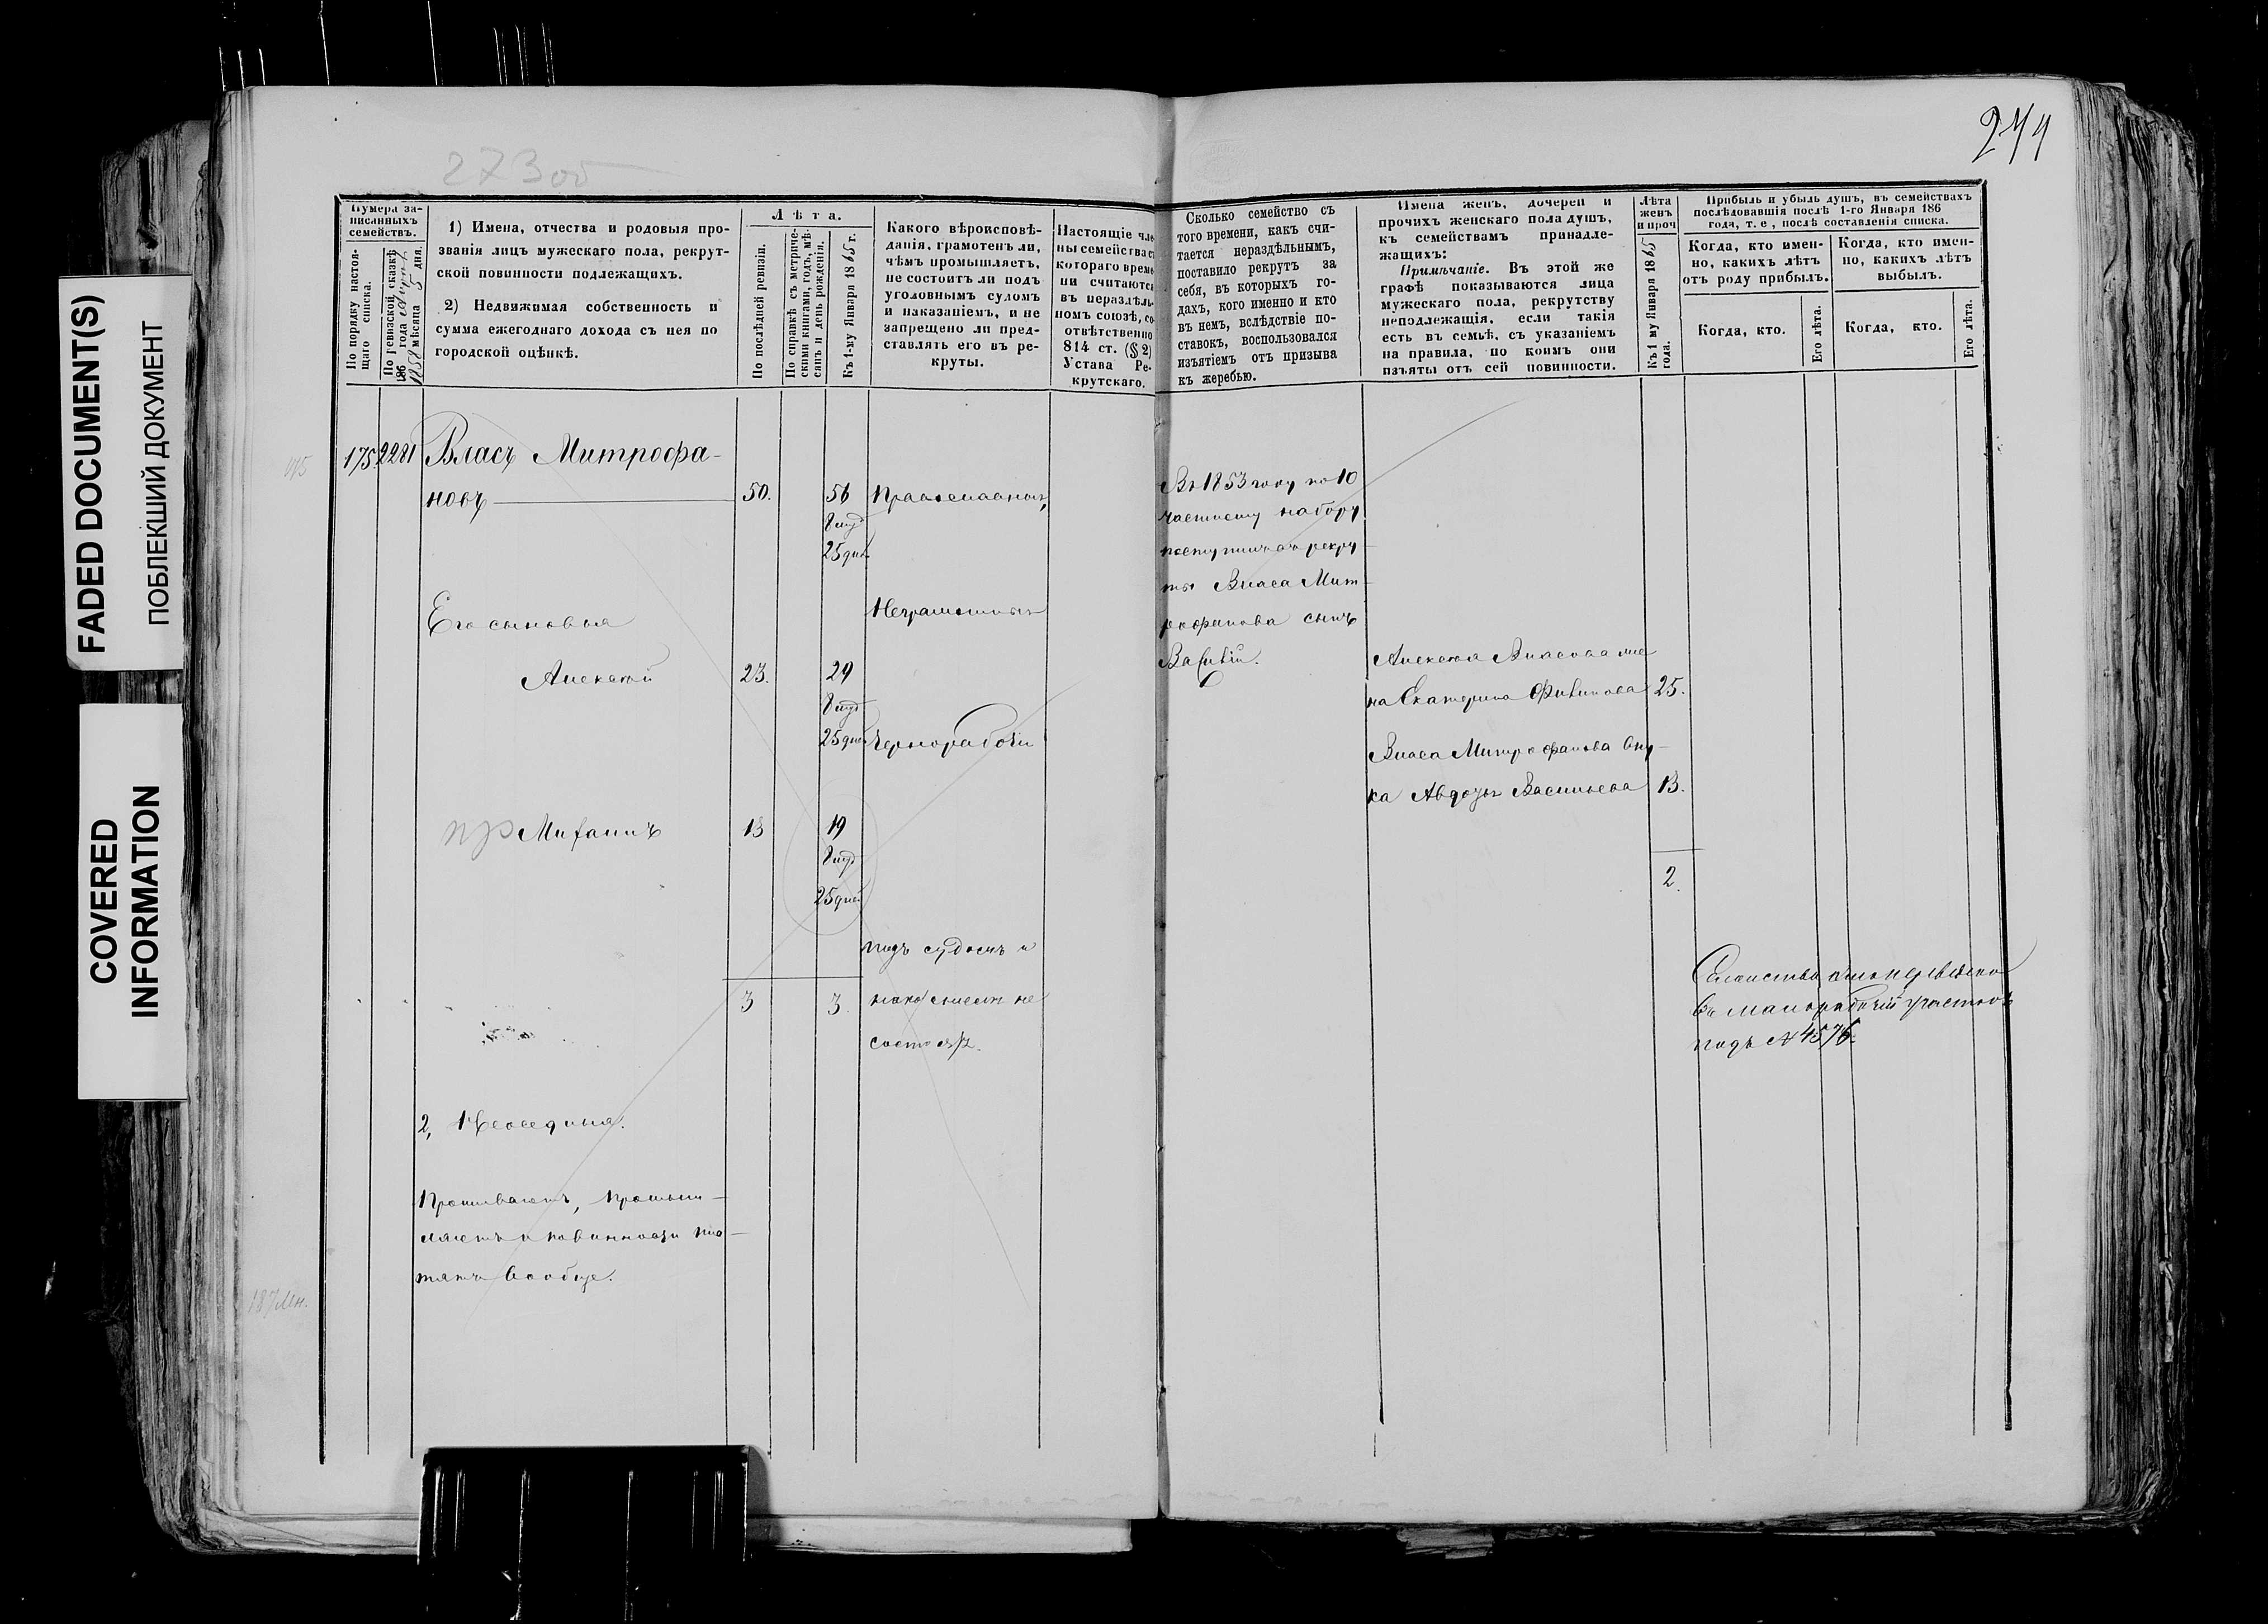 FADED DOCUMENT(S)
ПОБЛЕКШИЙ ДОКУМЕНТ
COVERED
INFORMATION
273 об
Нумера за-
писанныхъ
семействъ.
По порядку настоя-
щаго списка.
По ревизской сказкѣ
186 года
1858 мѣсяца 5 дня.
1) Имена, отчества и родовыя про-
званія лицъ мужескаго пола, рекрут-
ской повинности подлежащихъ.
2) Недвижимая собственность и
сумма ежегоднаго дохода съ нея по
городской оцѣнкѣ.
Лѣта.
По послѣдней ревизіи.
По справкѣ съ метриче-
скими книгами, годъ, мѣ-
сяцъ и день рожденія.
Къ 1-му Января 1865 г.
Какого вѣроисповѣ-
данія, грамотенъ ли,
чѣмъ промышляетъ,
не состоитъ ли подъ
уголовнымъ судомъ
и наказаніемъ, и не
запрещено ли пред-
ставлять его въ ре-
круты.
Настоящіе чле
ны семейства с
котораго време
ни считаются
въ нераздѣль-
номъ союзѣ, со-
отвѣтственно
814 ст. (§ 2)
Устава Ре-
крутскаго.
175 2281 Власъ Митрофа-
новъ 50. 56 православныхъ,
8 мѣс
25 дней
Его сыновья
Неграмотны
Алексѣй 23. 29
8 мѣс
25 дней чернорабочіи
пр Михаилъ 13 19
8 мѣс
25 дней
подъ судомъ и
3 3. наказаніемъ не
состоятъ.
2, Неоседлыя.
Проживаютъ, промыш-
ляютъ и повинности пла-
тятъ вообще.
274
Сколько семейство съ
того времени, какъ счи-
тается нераздѣльнымъ,
поставило рекрутъ за
себя, въ которыхъ го-
дахъ, кого именно и кто
въ немъ, вслѣдствіе по-
ставокъ, воспользовался
изъятіемъ отъ призыва
къ жеребью.
Имена женъ, дочерей и
прочихъ женскаго пола душъ,
къ семействамъ принадле-
жащихъ:
Примѣчаніе. Въ этой же
графѣ показываются лица
мужескаго пола, рекрутству
неподлежащія, если такія
есть въ семьѣ, съ указаніемъ
на правила, по коимъ они
изъяты отъ сей повинности.
Лѣта
женъ
и проч
Къ 1 му Января 1865
года.
Прибыль и убыль душъ, въ семействахъ
послѣдовавшія послѣ 1-го Января 186
года, т. е, послѣ составленія списка.
Когда, кто имен-
но, какихъ лѣтъ
отъ роду прибылъ.
Когда, кто имен-
но, какихъ лѣтъ
выбылъ.
Когда, кто.
Его лѣта.
Когда, кто.
Его лѣта.
Въ 1853 году по 10
частному набору
поступилъ въ рекру-
ты Власа Мит-
рофанова сынъ
Василій.
Алексѣя Власова же
на Екатерина Филипова 25.
Власа Митрофанова вну-
ка Авдотья Васильева 13.
2.
Семейство
въ малорабочій участокъ
подъ № 4576.